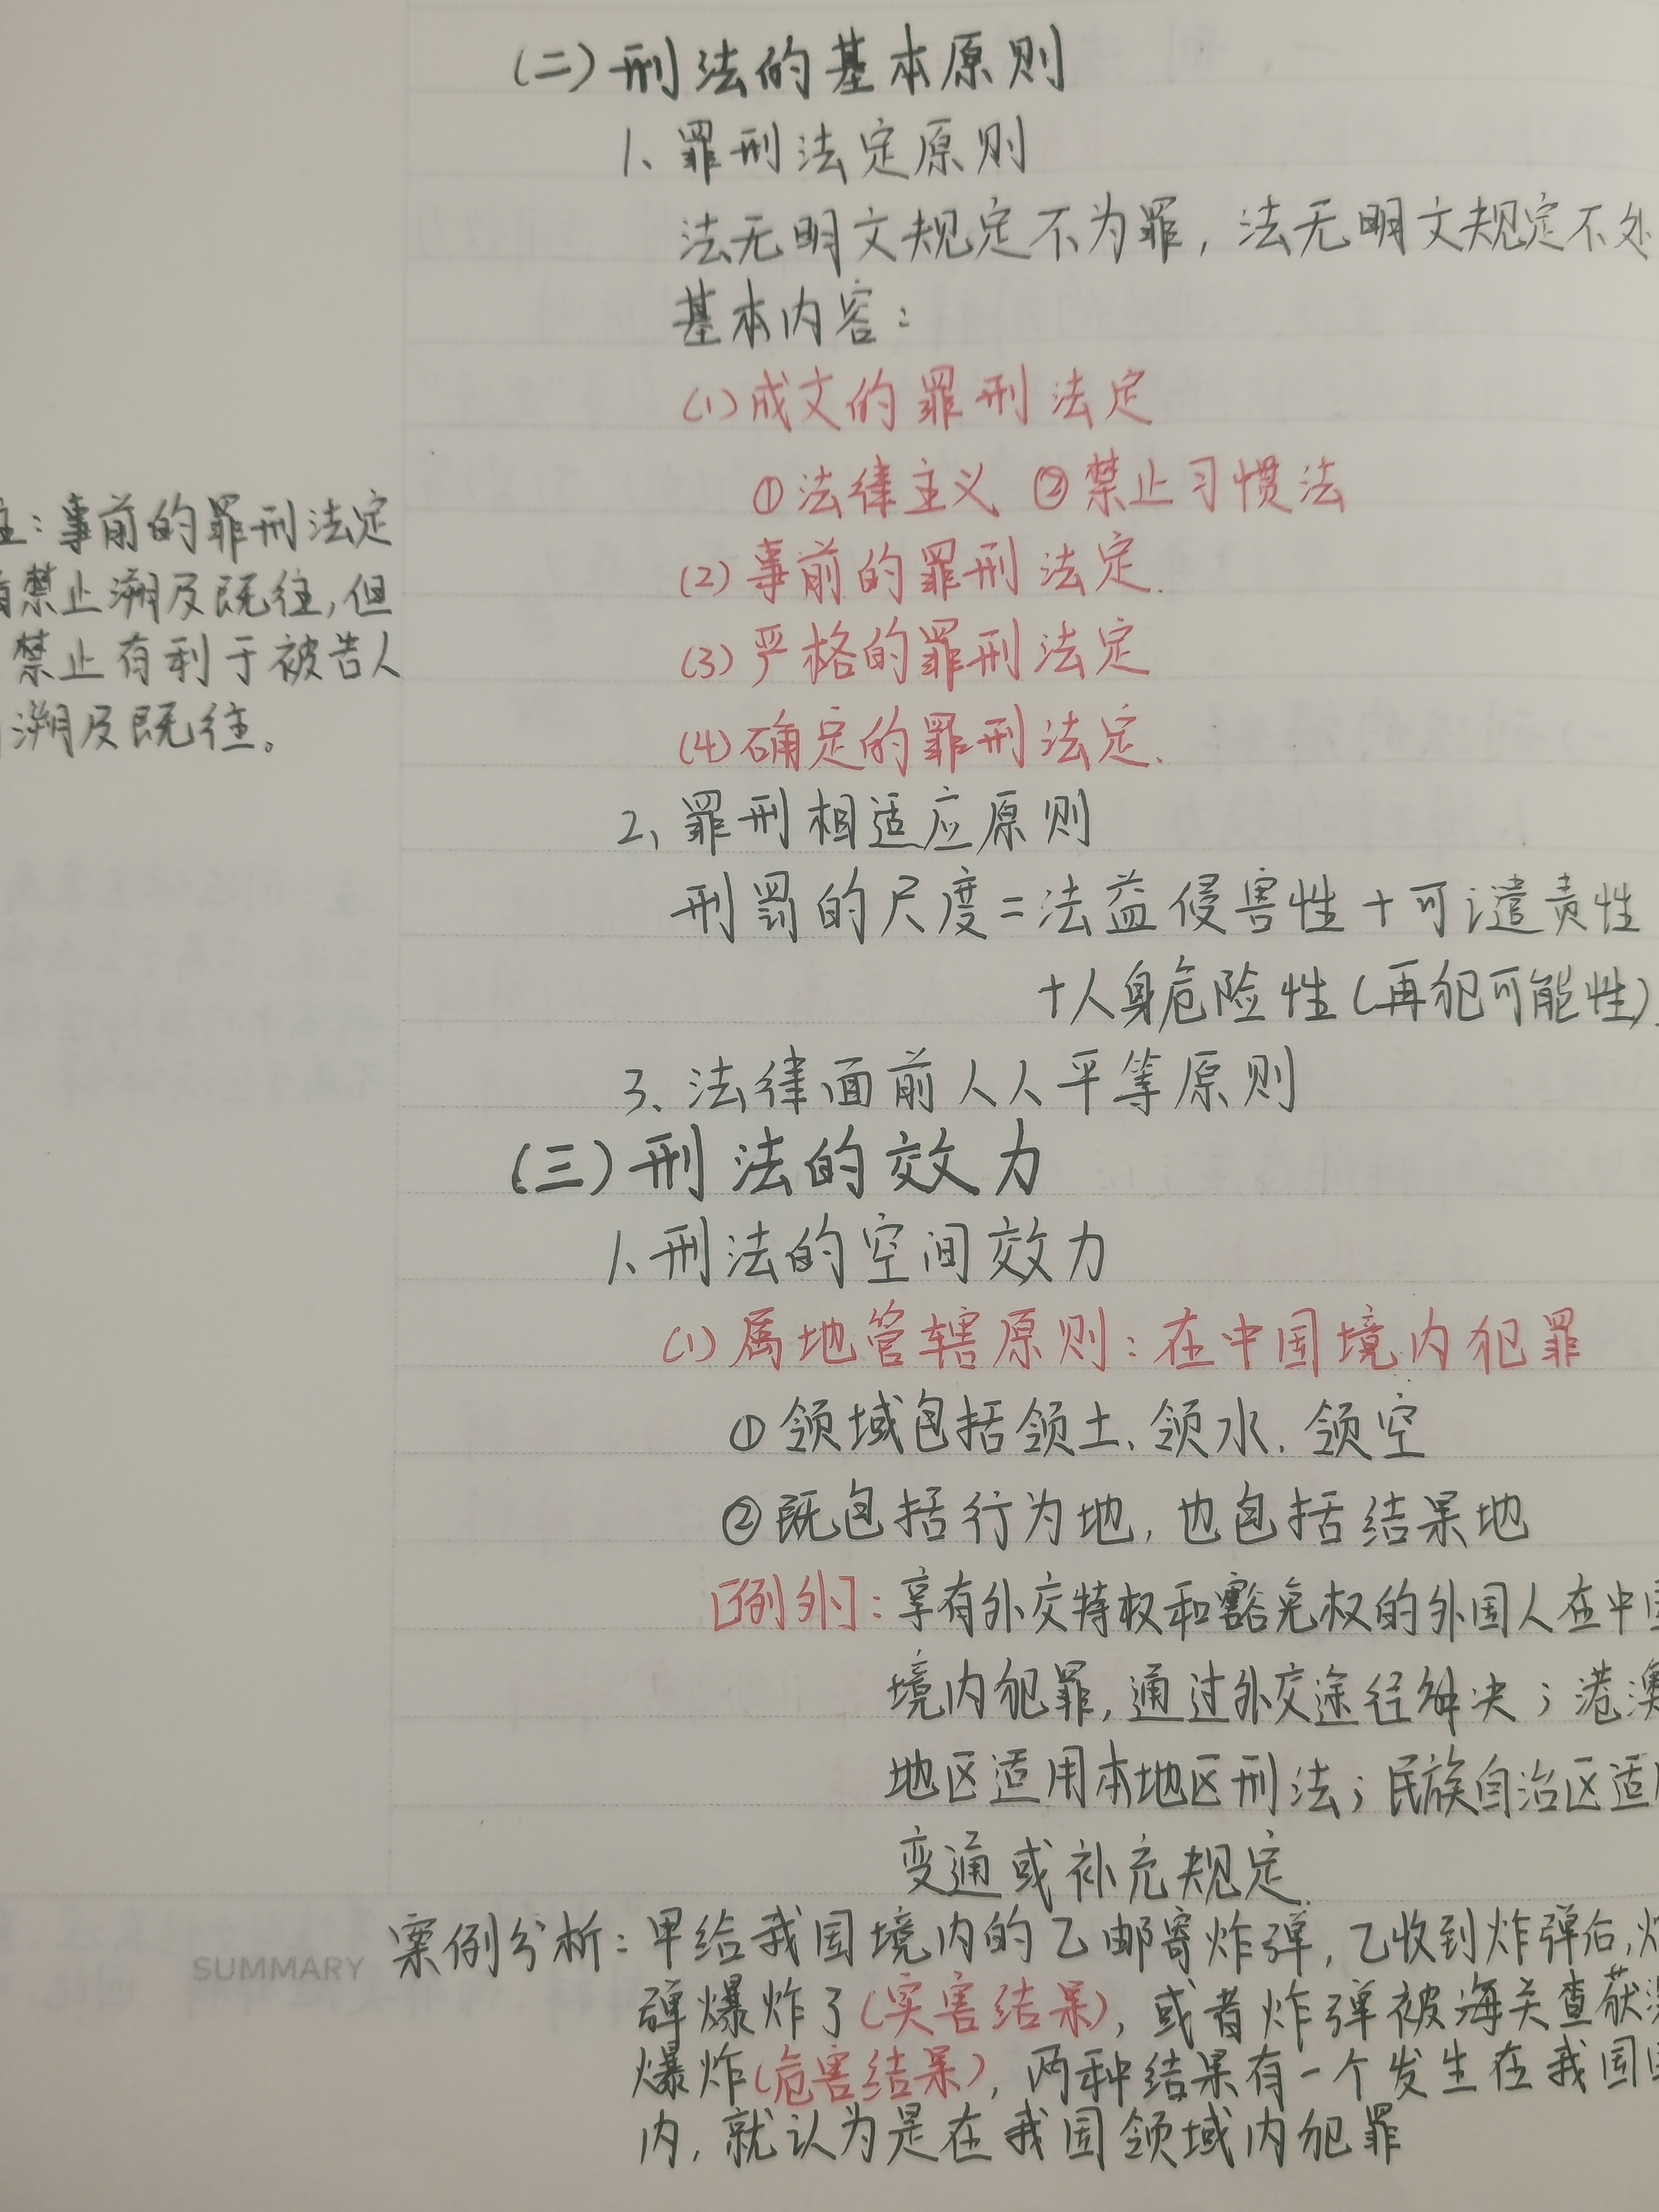 (二)刑法的基本原则
1、罪刑法定原则
法无明文规定不为罪,法无明文规定不处
基本内容:
(1)成文的罪刑法定
①法律主义 ②禁止习惯法
(2)事前的罪刑法定.
(3)严格的罪刑法定
(4)确定的罪刑法定.
2、罪刑相适应原则
刑罚的尺度=法益侵害性+可谴责性
+人身危险性(再犯可能性).
3、法律面前人人平等原则
:事前的罪刑法定
禁止溯及既往,但
禁止有利于被告人
溯及既往。
(三)刑法的效力
1、刑法的空间效力
(1)属地管辖原则:在中国境内犯罪
①领域包括领土、领水、领空
②既包括行为地,也包括结果地
[例外]:享有外交特权和豁免权的外国人在中国
境内犯罪,通过外交途径解决;港澳
地区适用本地区刑法;民族自治区适用
变通或补充规定.
SUMMARY
案例分析:甲给我国境内的乙邮寄炸弹,乙收到炸弹后,炸
弹爆炸了(实害结果),或者炸弹被海关查获
爆炸(危害结果),两种结果有一个发生在我国
内,就认为是在我国领域内犯罪